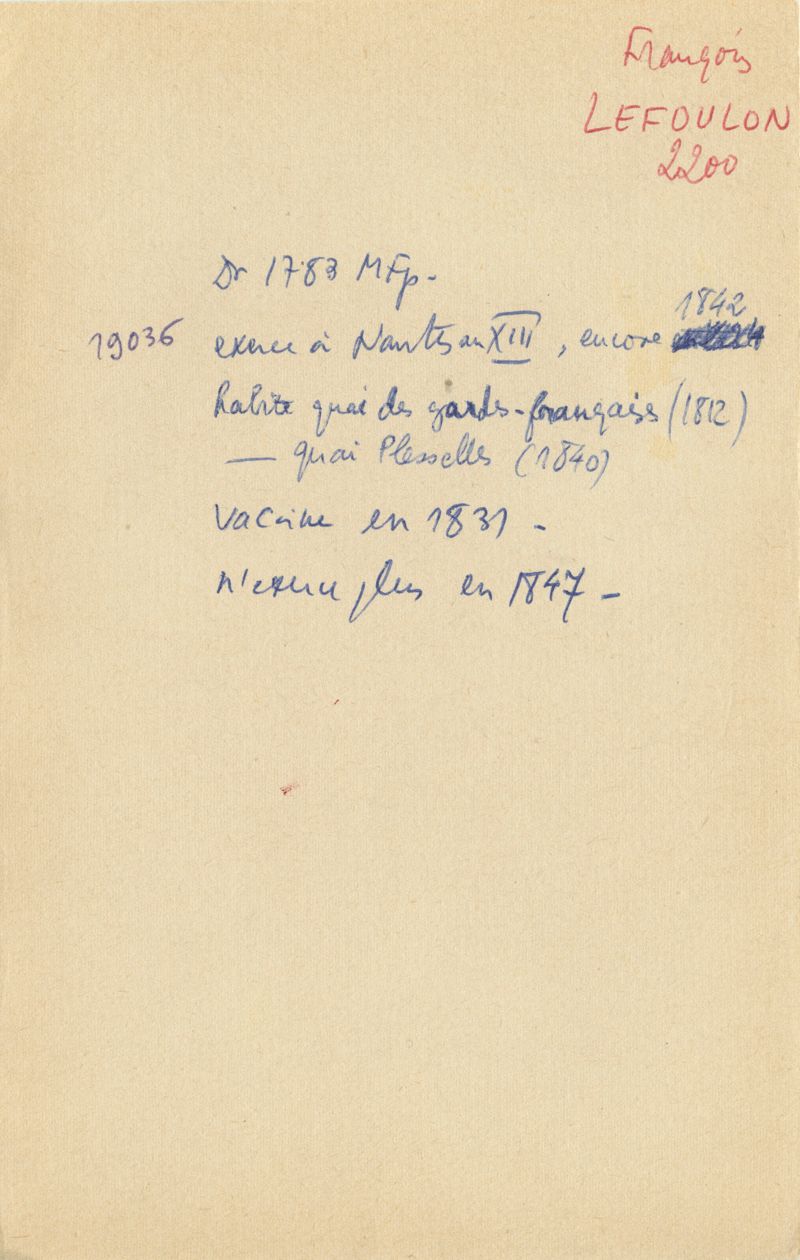 François
LEFOULON
2200
Dr 1783 Mtp.
1842
19036 exerce à Nantes an XIII, encore
habite quai des gardes-françaises (1812)
— quai Plesselles (1840)
Vaccine en 1831 -
n'exerce plus en 1847 -